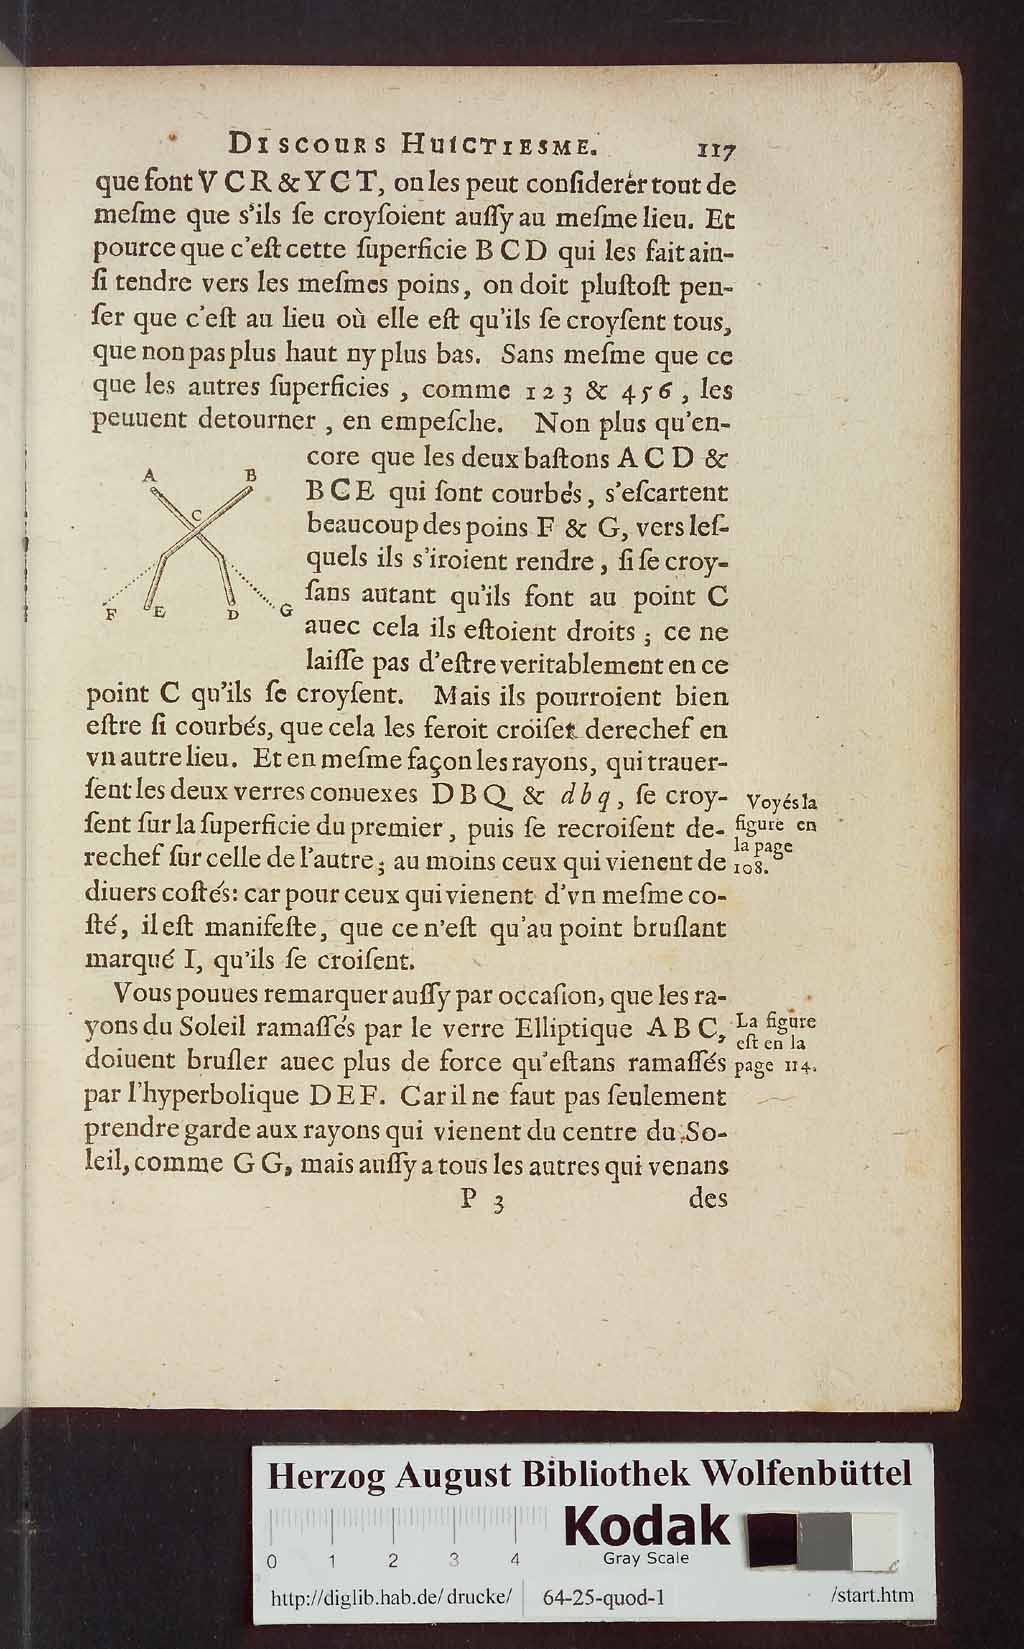 DISCOURS HUICTIESME. 117
que ſont V C R & Y C T, on les peut conſiderer tout de
meſme que s'ils ſe croyſoient auſſy au meſme lieu. Et
pource que c'eſt cette ſuperficie B C D qui les fait ain-
ſi tendre vers les meſmes poins, on doit pluſtoſt pen-
ſer que c'eſt au lieu où elle eſt qu'ils ſe croyſent tous,
que non pas plus haut ny plus bas. Sans meſme que ce
que les autres ſuperficies , comme 1 2 3 & 4 5 6 , les
peuuent detourner , en empeſche. Non plus qu'en-
core que les deux baſtons A C D &
B C E qui ſont courbés, s'eſcartent
beaucoup des poins F & G, vers leſ-
quels ils s'iroient rendre, ſi ſe croy-
ſans autant qu'ils font au point C
auec cela ils eſtoient droits ; ce ne
laiſſe pas d'eſtre veritablement en ce
A
B
C
F
E
D
G
point C qu'ils ſe croyſent. Mais ils pourroient bien
eſtre ſi courbés, que cela les feroit croiſer derechef en
vn autre lieu. Et en meſme façon les rayons, qui trauer-
ſent les deux verres conuexes D B Q & d b q, ſe croy-
ſent ſur la ſuperficie du premier, puis ſe recroiſent de-
rechef ſur celle de l'autre; au moins ceux qui vienent de
diuers coſtés: car pour ceux qui vienent d'vn meſme co-
ſté, il eſt manifeſte, que ce n'eſt qu'au point bruſlant
marqué I, qu'ils ſe croiſent.
Voyés la
figure en
la page
108.
Vous pouues remarquer auſſy par occaſion, que les ra-
yons du Soleil ramaſſés par le verre Elliptique A B C,
doiuent bruſler auec plus de force qu'eſtans ramaſſés
par l'hyperbolique D E F. Car il ne faut pas ſeulement
prendre garde aux rayons qui vienent du centre du So-
leil, comme G G, mais auſſy a tous les autres qui venans
La figure
eſt en la
page 114.
P 3 des
Herzog August Bibliothek Wolfenbüttel
Kodak
Gray Scale
0 1 2 3 4
http://diglib.hab.de/drucke/ 64-25-quod-1 /start.htm